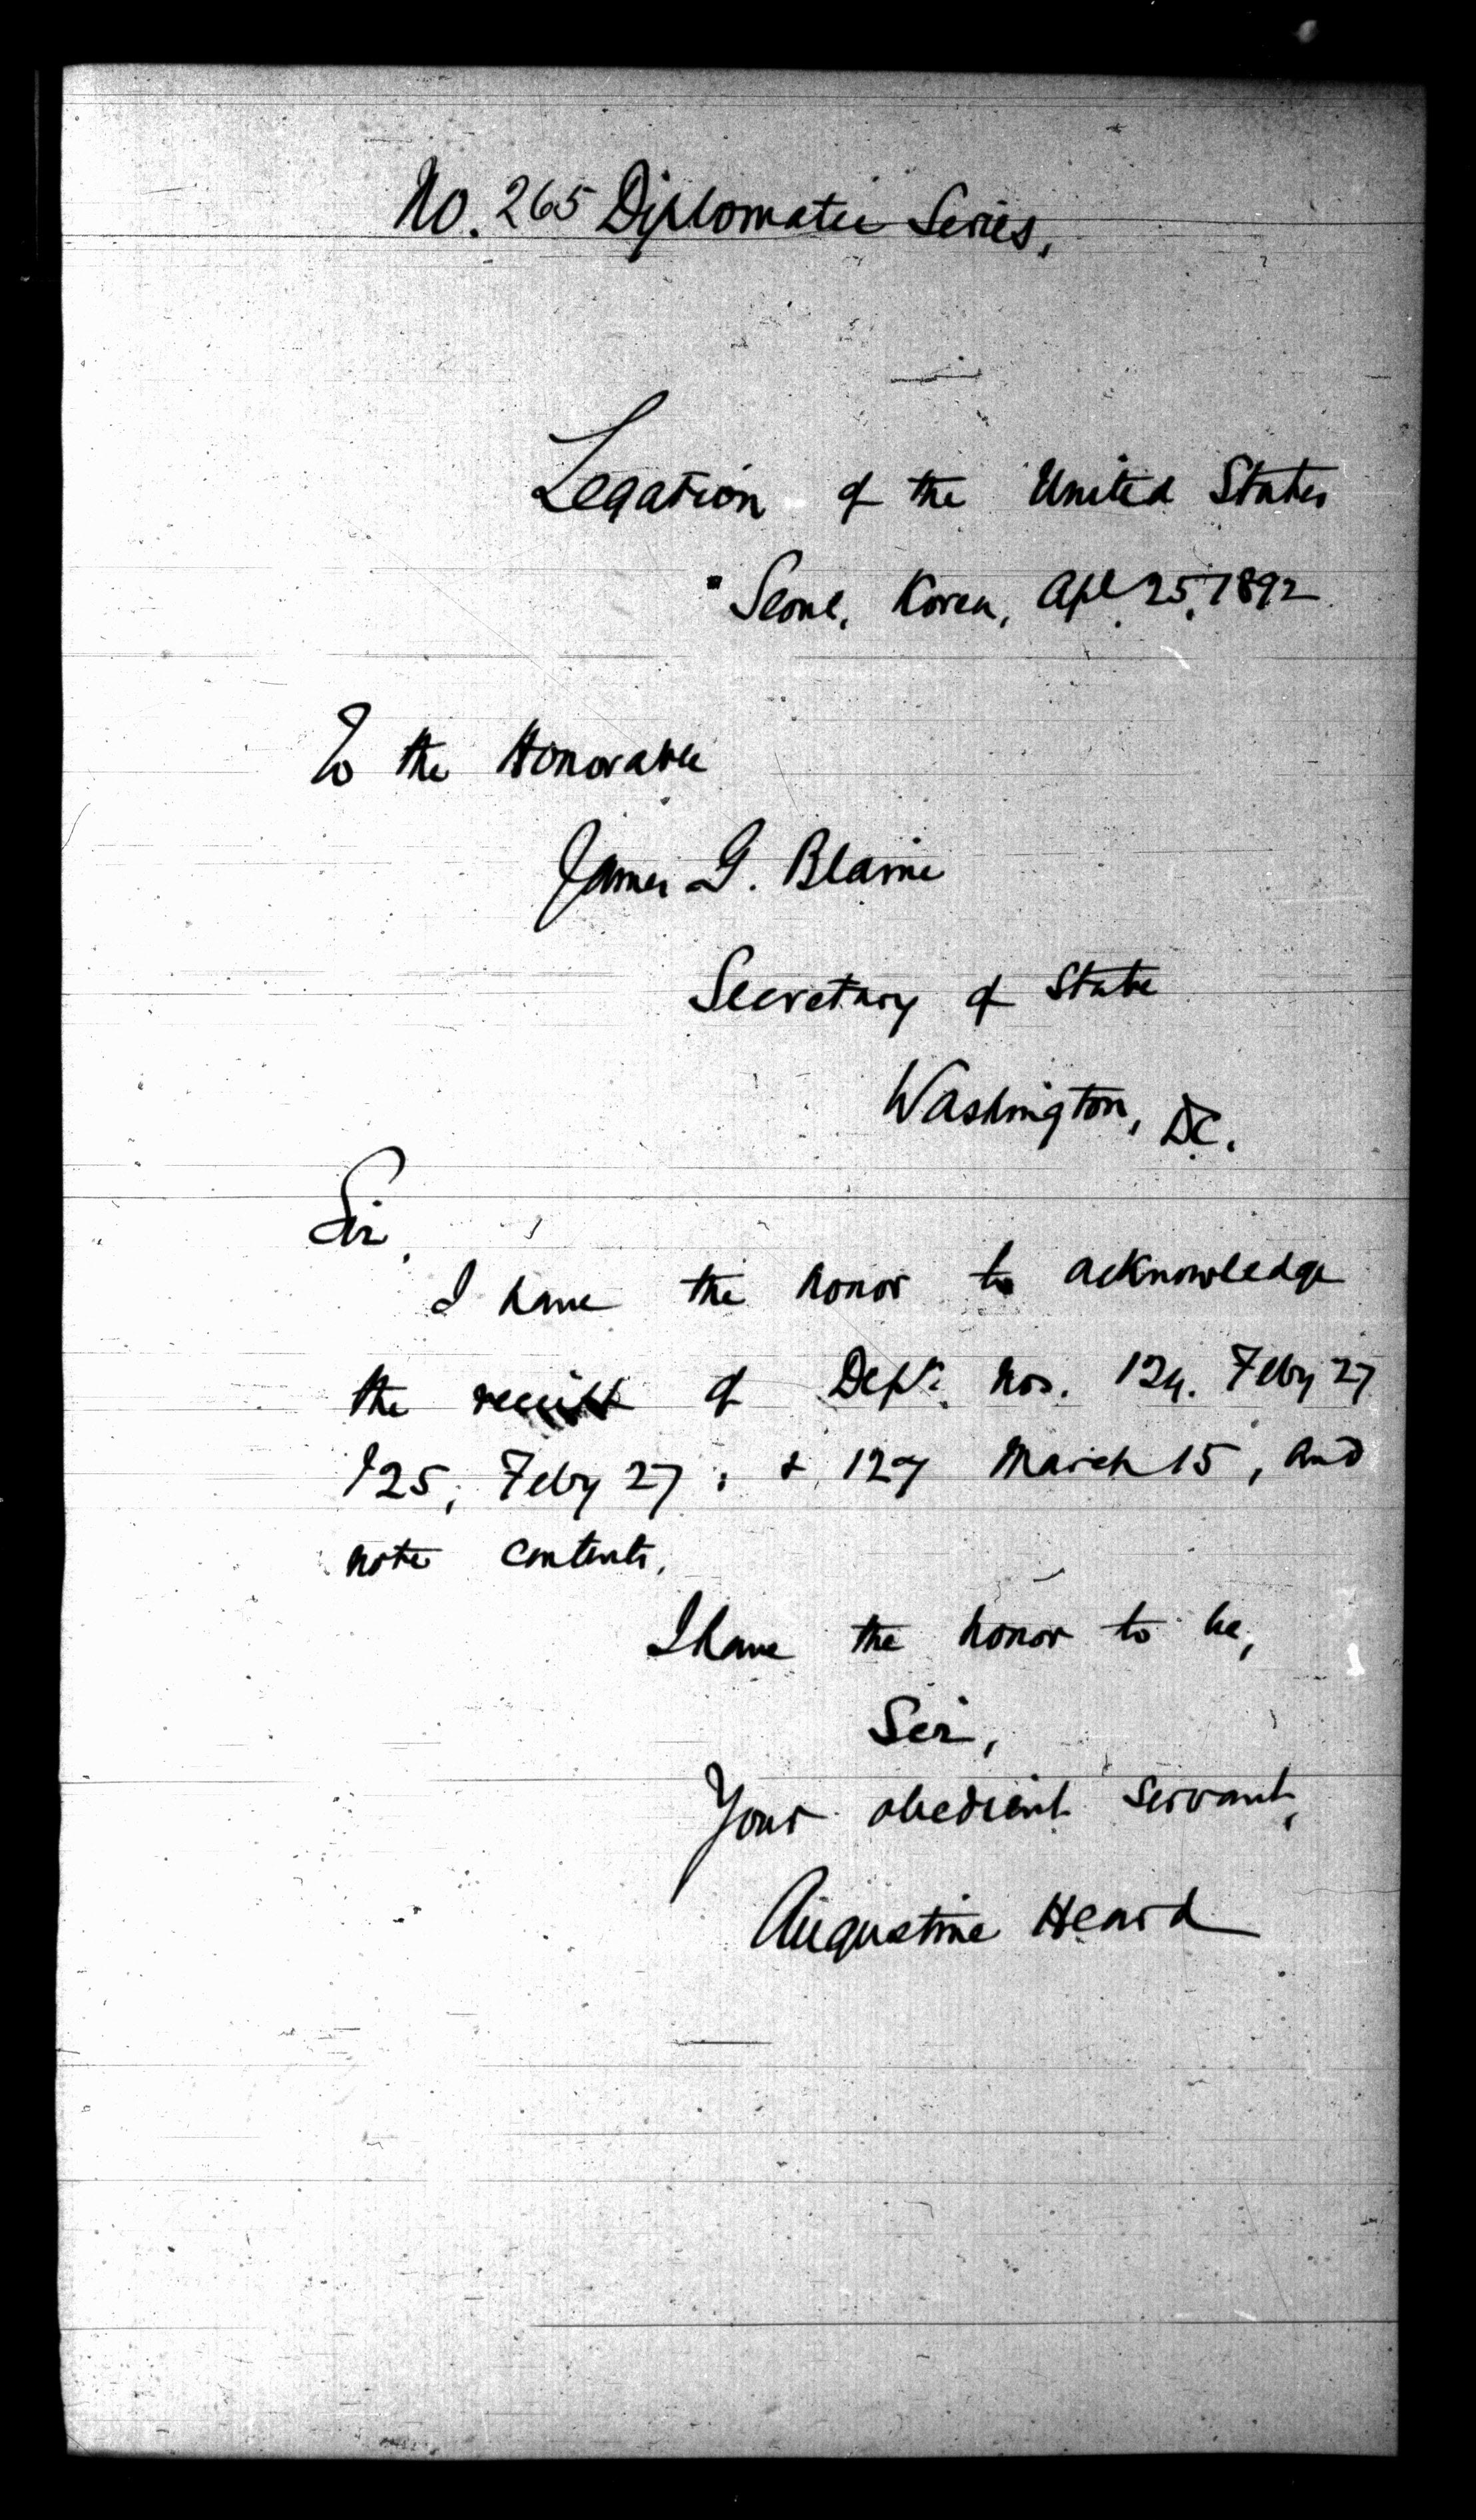 No. 265 Diplomatic Series.
Legation of the United States
Seoul, Korea, Apl 25, 1892
To the Honorable
James G. Blaine
Secretary of State
Washington, D.C.
Sir,
I have the honor to acknowledge
the receipt of Dept. Nos. 124. Feby 27
125, Feby 27; & 127 March 15, and
note contents.
I have the honor to be,
Sir,
Your obedient servant,
Augustine Heard